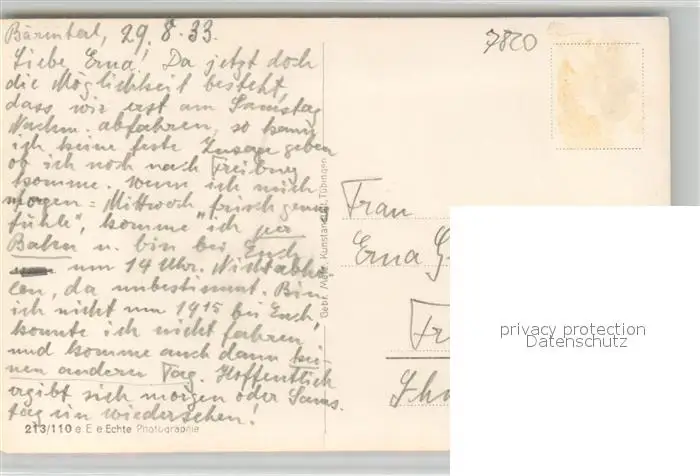 Bärental, 29.8.33.
Liebe Erna! Da jetzt doch
die Möglichkeit besteht,
dass wir erst am Samstag
Nachm. abfahren, so kann
ich keine feste Zusage geben
ob ich noch nach Freiburg
komme. Wenn ich mich
morgen = Mittwoch „frisch genug
fühle", komme ich per
Bahn u. bin bei Euch
um 14 Uhr. Nicht abho-
len, da unbestimmt. Bin
ich nicht um 14¹⁵ bei Euch,
konnte ich nicht fahren
und komme auch dann kei-
nen anderen Tag. Hoffentlich
ergibt sich morgen oder Sams-
tag ein wiedersehen!
213/110 e. E e Echte Photographie
Gebr. Metz, Kunstanstalt, Tübingen
7820
Frau
Erna G
Fr
privacy protection
Datenschutz